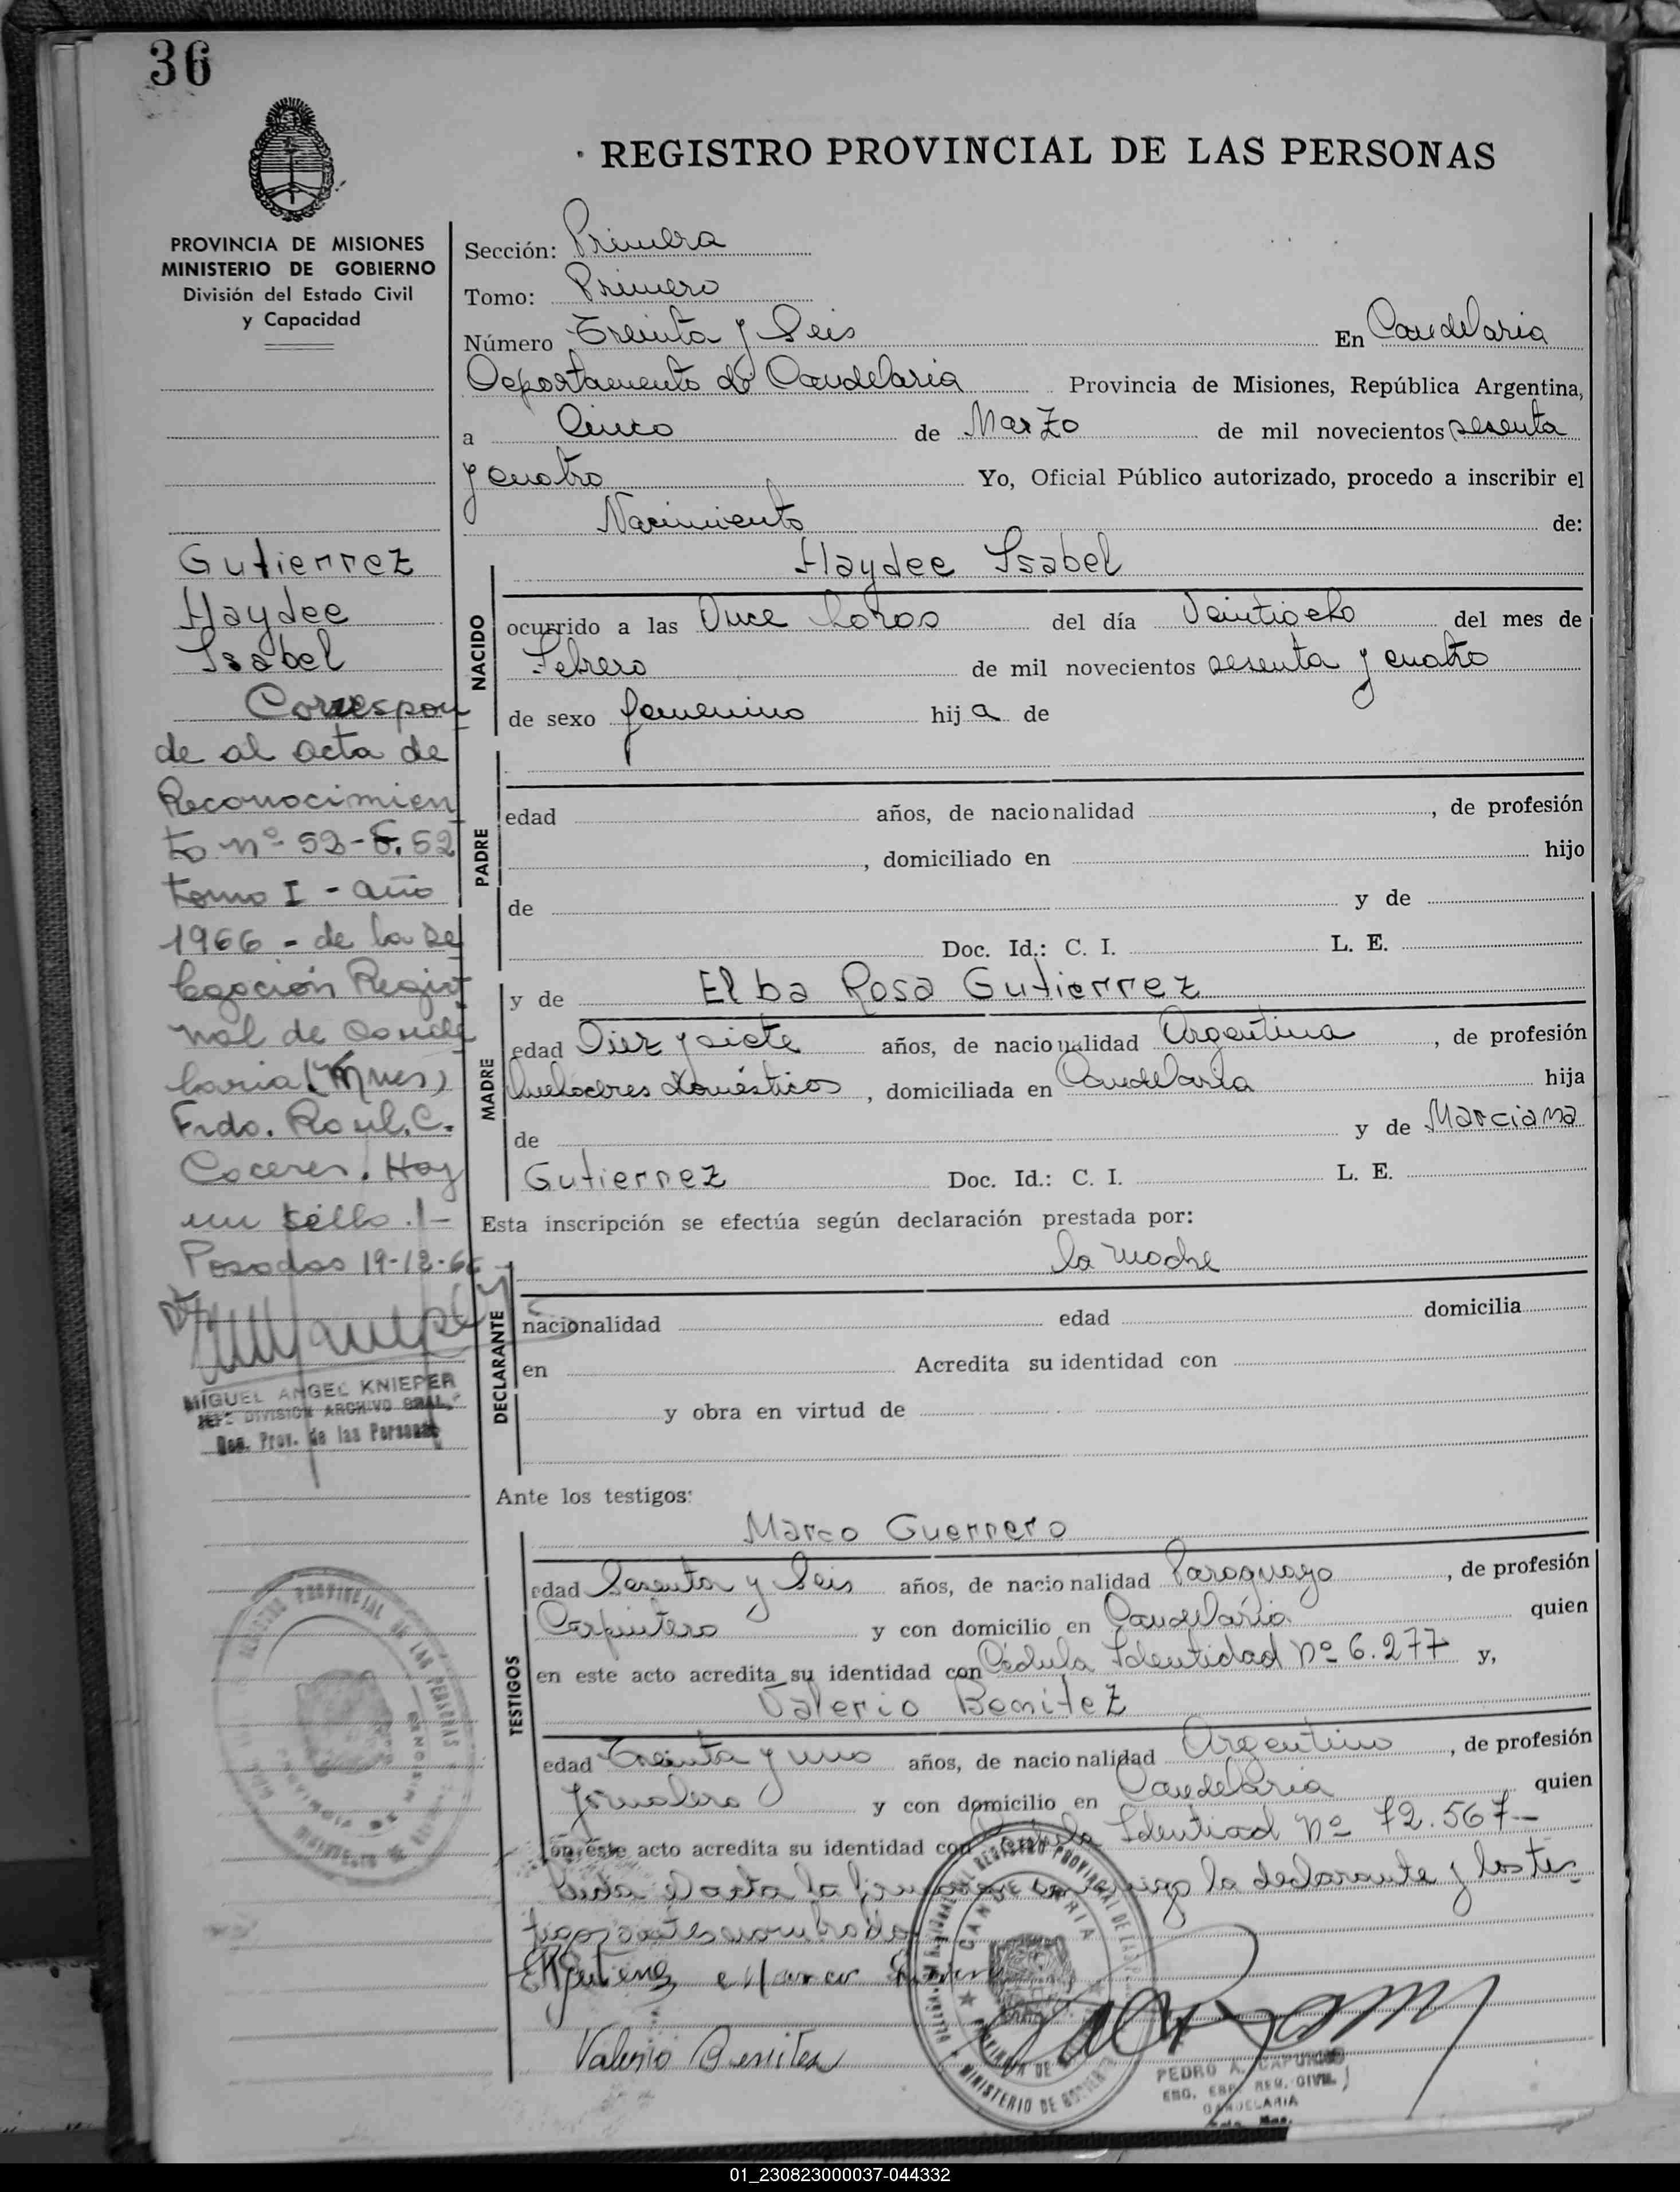 36
REGISTRO PROVINCIAL DE LAS PERSONAS
PROVINCIA DE MISIONES
MINISTERIO DE GOBIERNO
División del Estado Civil
y Capacidad
Gutierrez
Haydee
Isabel
Correspon
de al acta de
Reconocimien
to nº 52-F.52
tomo I - año
1966 - de la De
legación Regio
nal de Cande
laria (Mnes)
Frdo. Raúl.C.
Caceres. Hay
un sello.!-
Posadas 19-12-66
MIGUEL ANGEL KNIEPER
JEFE DIVISION ARCHIVO GRAL.
Reg. Prov. de las Personas
Sección: Primera
Tomo: Primero
Número Treinta y Seis En Candelaria
Departamento de Candelaria Provincia de Misiones, República Argentina,
a Cinco de Marzo de mil novecientos sesenta
y cuatro Yo, Oficial Público autorizado, procedo a inscribir el
Nacimiento de:
NACIDO
Haydee Isabel
ocurrido a las Once horas del día Veintiocho del mes de
Febrero de mil novecientos sesenta y cuatro
de sexo femenino hija de
PADRE
edad años, de nacionalidad , de profesión
, domiciliado en hijo
de y de
Doc. Id.: C. I. L. E.
MADRE
y de Elba Rosa Gutierrez
edad Diez y siete años, de nacionalidad Argentina , de profesión
quehaceres domésticos , domiciliada en Candelaria hija
de y de Marciana
Gutierrez Doc. Id.: C. I. L. E.
Esta inscripción se efectúa según declaración prestada por:
DECLARANTE
la madre
nacionalidad edad domicilia
en Acredita su identidad con
y obra en virtud de
Ante los testigos:
TESTIGOS
Marco Guerrero
edad Sesenta y Seis años, de nacionalidad Paraguayo , de profesión
Carpintero y con domicilio en Candelaria quien
en este acto acredita su identidad con Cédula Identidad Nº 6.277 y,
Valerio Benitez
edad Treinta y uno años, de nacionalidad Argentino , de profesión
Jornalero y con domicilio en Candelaria quien
en este acto acredita su identidad con Cédula Identiad Nº 72.567-
Leida el acta la firmaron conmigo la declarante y los tes
tigos antes nombrados
Valerio Benitez
REGISTRO PROVINCIAL DE LAS PERSONAS
CANDELARIA
PROVINCIA DE
MINISTERIO DE GOBIERNO
PEDRO A. CAPUNGO
ENC. REG. CIVIL
CANDELARIA
01_230823000037-044332